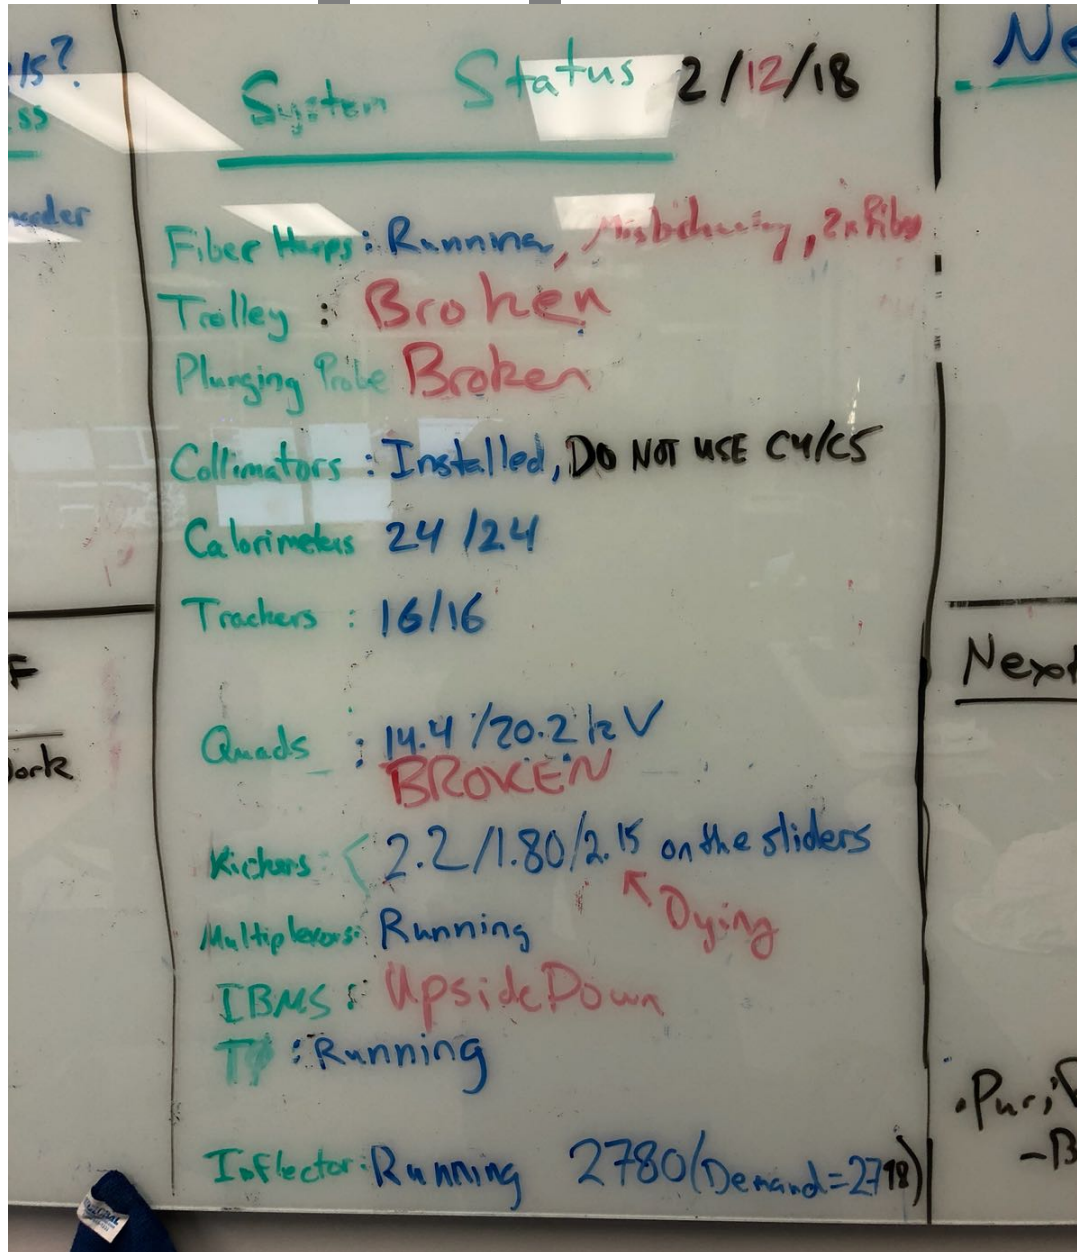 System Status 2/12/18
Fiber Harps: Running, Misbehaving, 2x Fiber
Trolley : Broken
Plunging Probe Broken
Collimators : Installed, DO NOT USE C4/C5
Calorimeters 24/24
Trackers : 16/16
Quads : 14.4/20.2 kV
BROKEN
Kickers : 2.2/1.80/2.15 on the sliders
Dying
Multiplexors: Running
IBMS : Upside Down
: Running
Inflector: Running 2780 (Demand=2798)
15?
ss
F
ork
Ne
Next